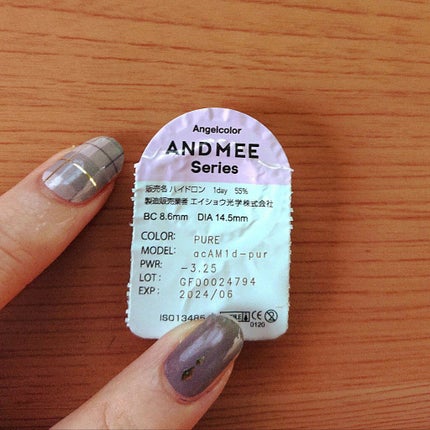 Angelcolor
ANDMEE
Series
販売名 ハイドロン 1day 55%
製造販売業者 エイショウ光学株式会社
BC 8.6mm DIA 14.5mm
COLOR: PURE
MODEL: acAM1d-pur
PWR: -3.25
LOT: GF00024794
EXP: 2024/06
ISO13485
CE
0120